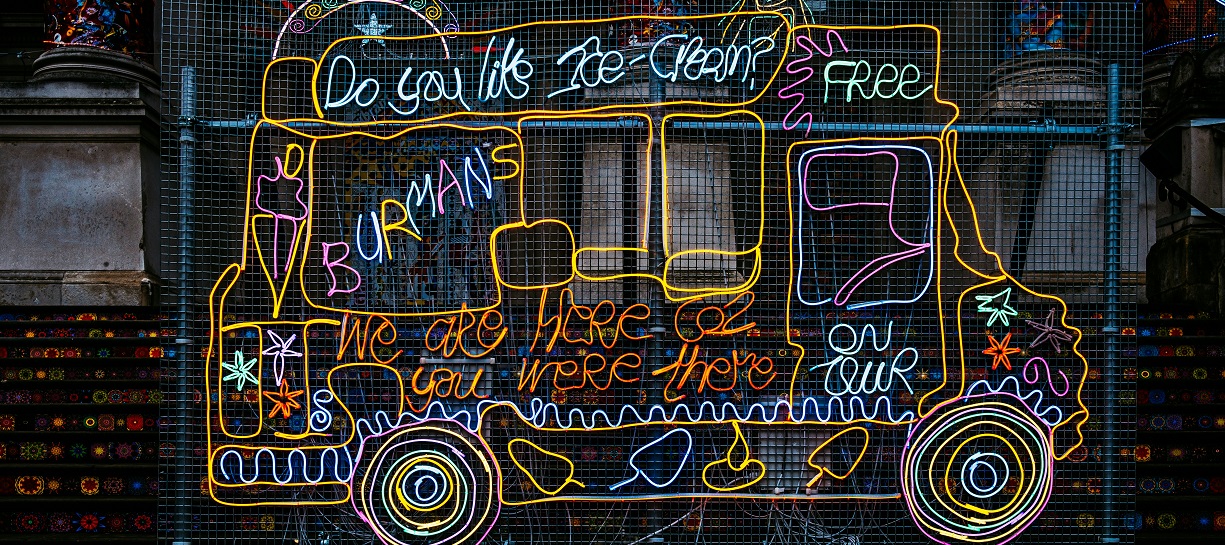 Do you like Ice-Cream?
FREE
BURMANS
We are here coz
you were there
ON
TOUR